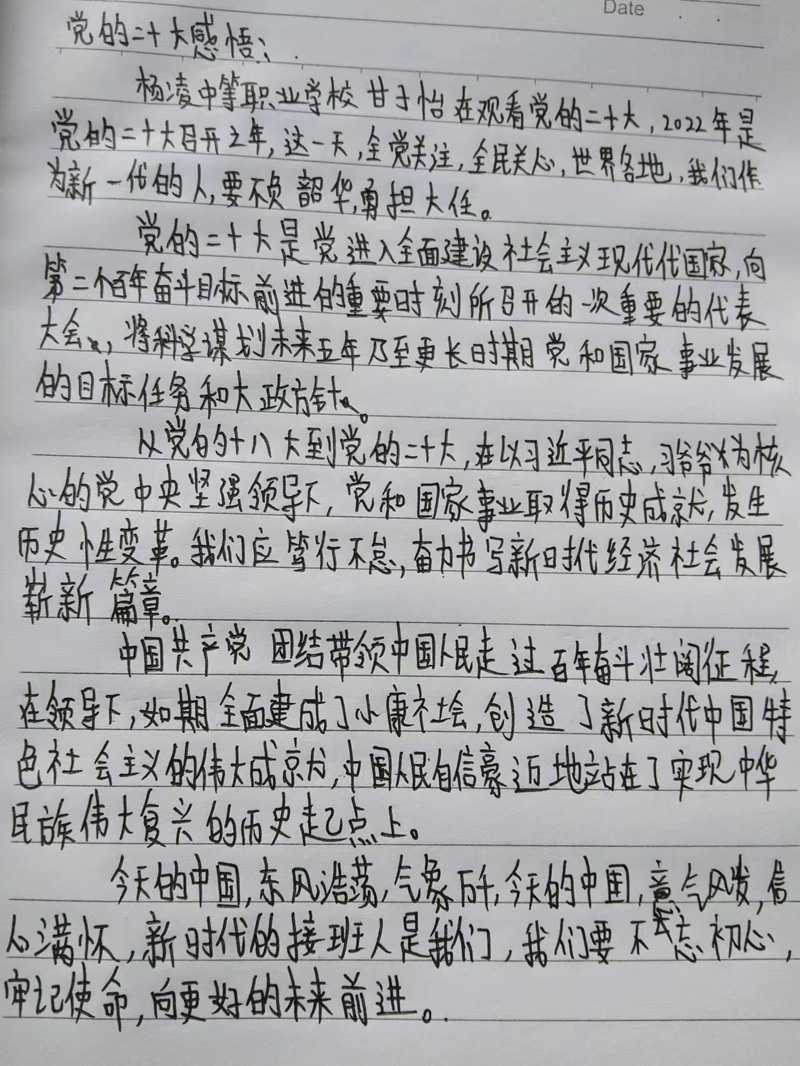 Date . .
党的二十大感悟：
杨凌中等职业学校 甘于怡 在观看党的二十大，2022年是
党的二十大召开之年，这一天，全党关注，全民关心，世界各地，我们作
为新一代的人，要不负韶华，勇担大任。
党的二十大是党进入全面建设社会主义现代代国家，向
第二个百年奋斗目标前进的重要时刻所召开的一次重要的代表
大会、，将科学谋划未来五年乃至更长时期党和国家事业发展
的目标任务和大政方针。
从党的十八大到党的二十大，在以习近平同志，习爷爷为核
心的党中央坚强领导下，党和国家事业取得历史成就，发生
历史性变革。我们应笃行不怠，奋力书写新时代经济社会发展
崭新篇章。
中国共产党 团结带领中国人民走过百年奋斗壮阔征程，
在领导下，如期全面建成了小康社会，创造了新时代中国特
色社会主义的伟大成就，中国人民自信豪迈地站在了实现中华
民族伟大复兴的历史起点上。
今天的中国，东风浩荡，气象万千，今天的中国，意气风发，信
心满怀，新时代的接班人是我们，我们要不忘初心，
牢记使命，向更好的未来前进。